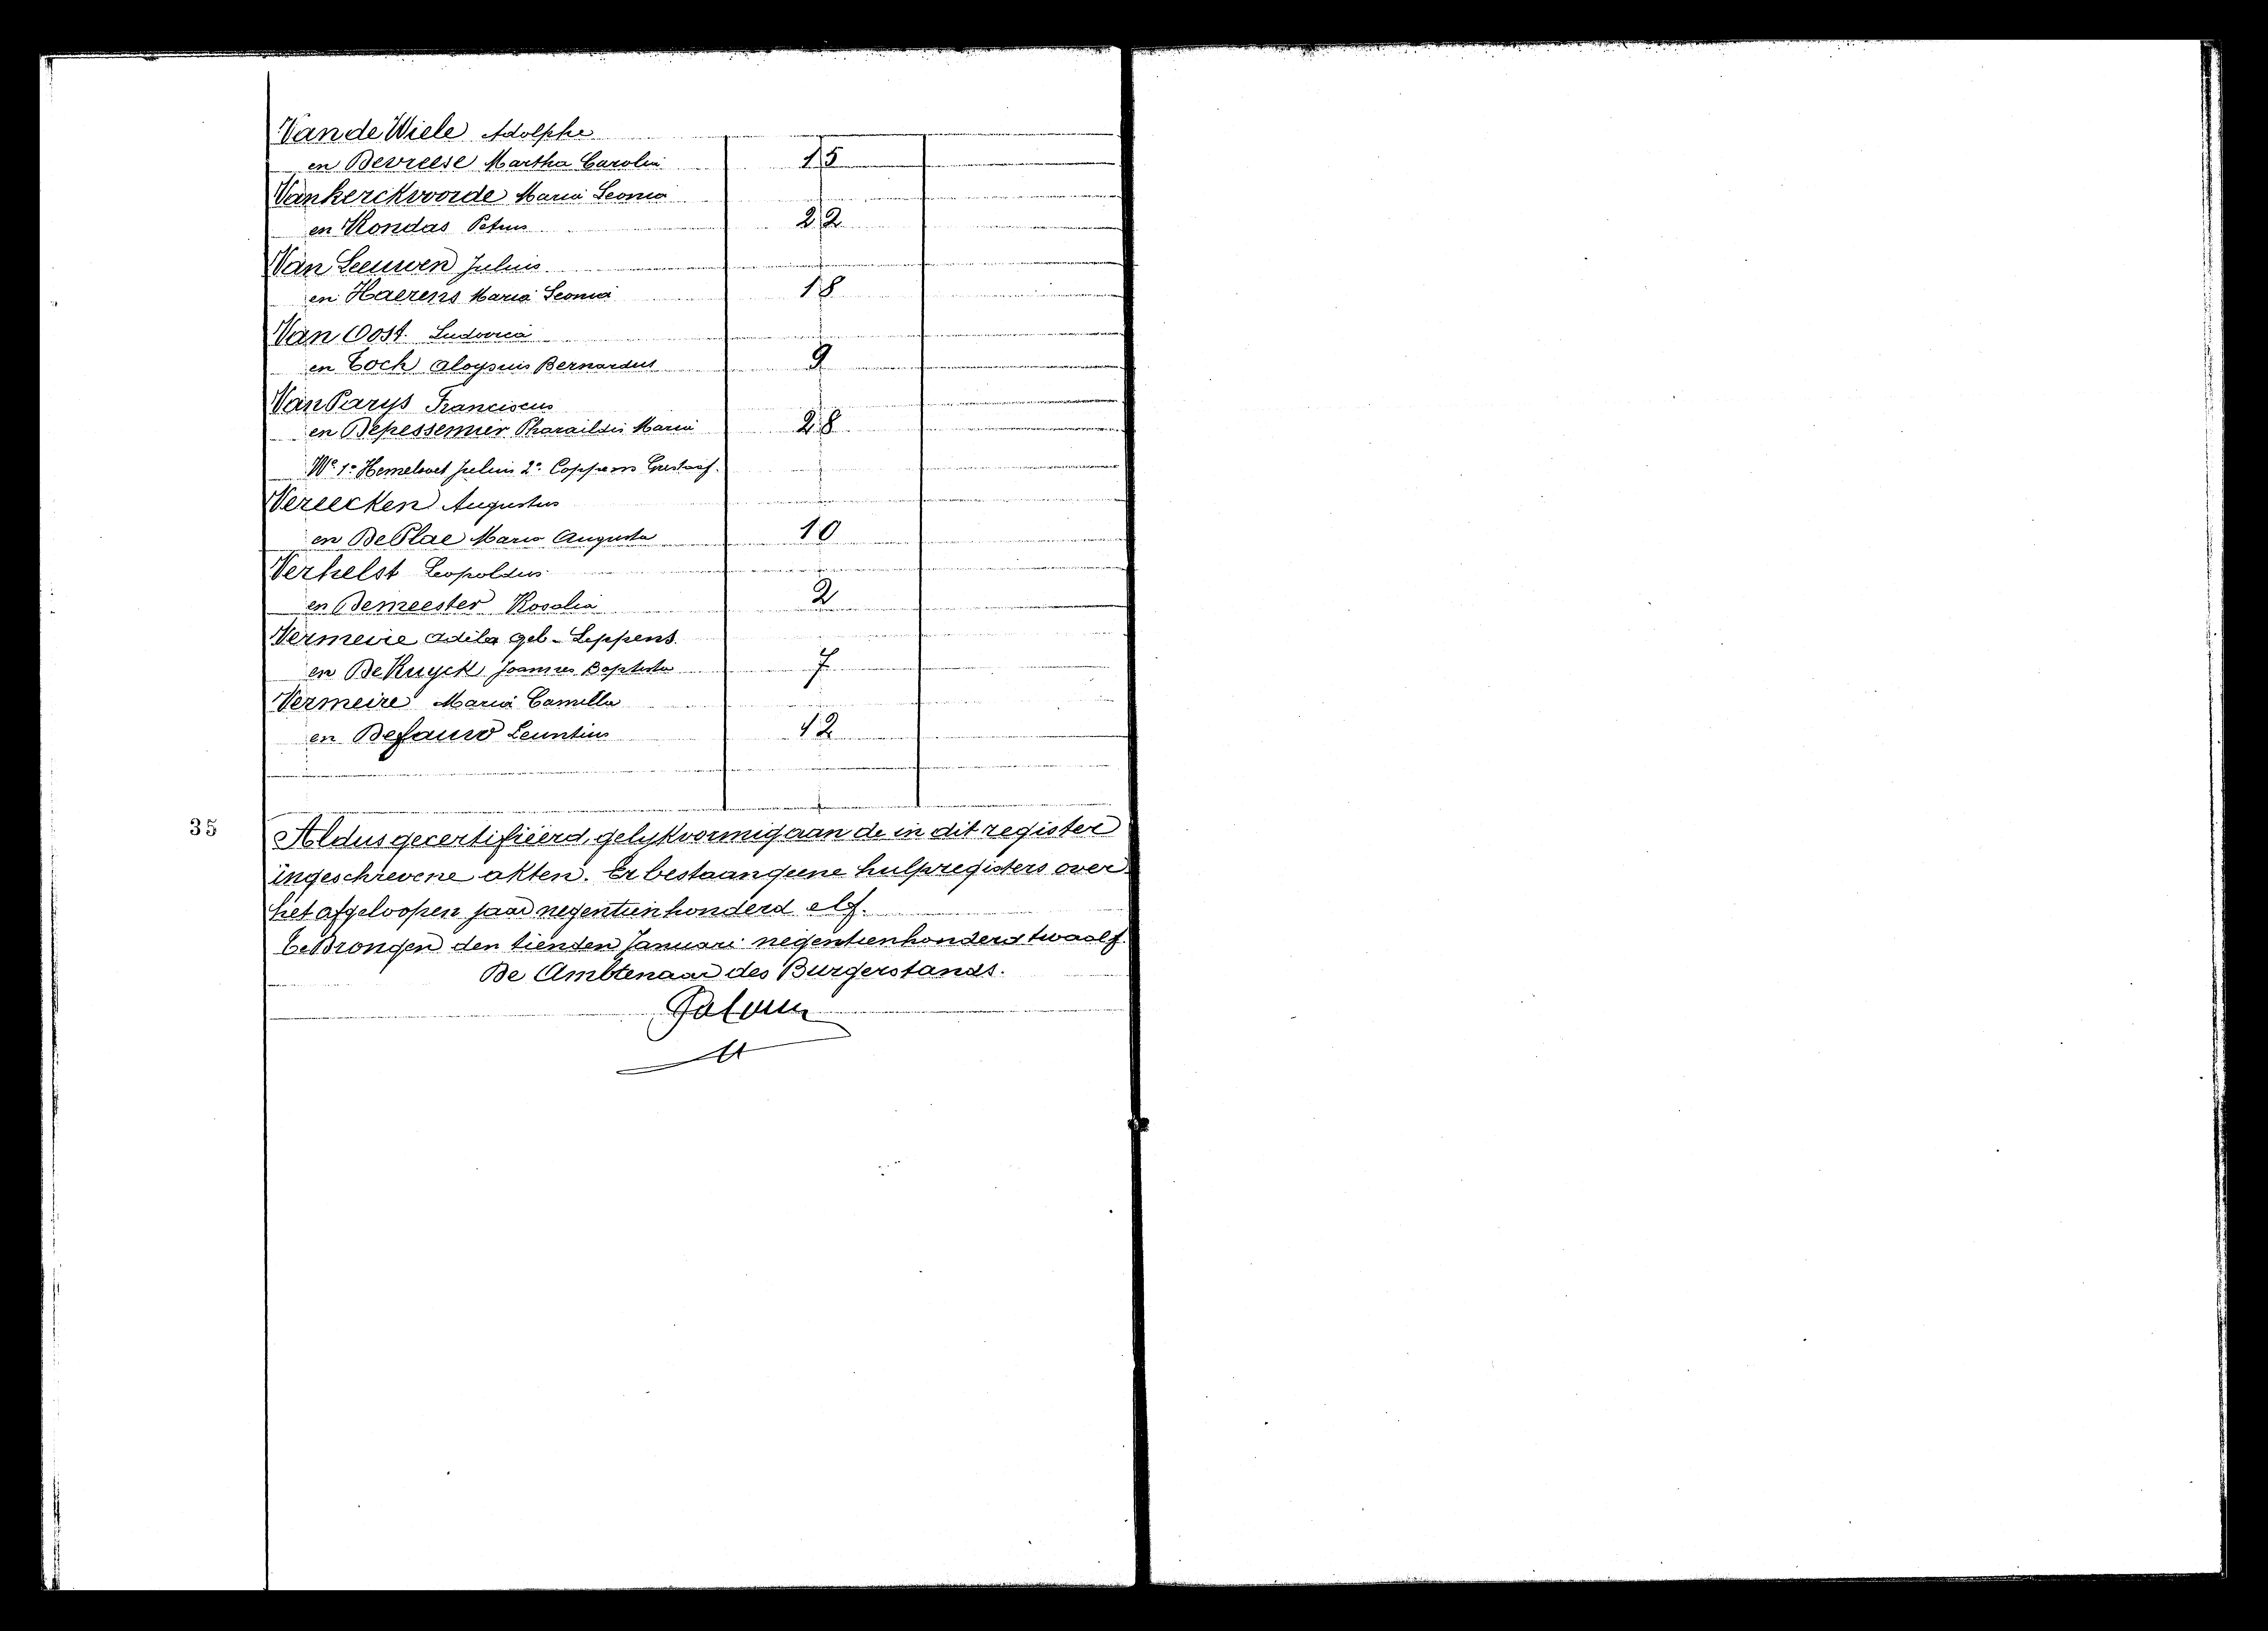 Van de Wiele Adolphe
en Devreese Martha Carolin 15
Vankerckvoorde Maria Leonia
en Rondas Petrus 22
Van Leeuwen Julius
en Haerens Maria Leonia 18
Van Oost Ludovica
en Toch Aloysius Bernardus 9
Van Parys Franciscus
en Depessemier Pharaildis Maria 28
We 1° Hemelsoet Julius 2° Coppens Gustaaf.
Vereecken Augustus
en De Plae Maria Augusta 10
Verhelst Leopoldus
en Demeester Rosalia 2
Vermeire Adila geb- Leppens.
en De Kuyck Joannes Baptista 7
Vermeire Maria Camilla
en Defauw Leuntius 12
35
Aldus gecertifieerd, gelykvormig aan de in dit register
ingeschrevene akten. Er bestaan geene hulpregisters over
het afgeloopen jaar negentienhonderd elf.
Te Drongen den tienden Januari negentienhonderd twaalf.
De Ambtenaar des Burgerstands.